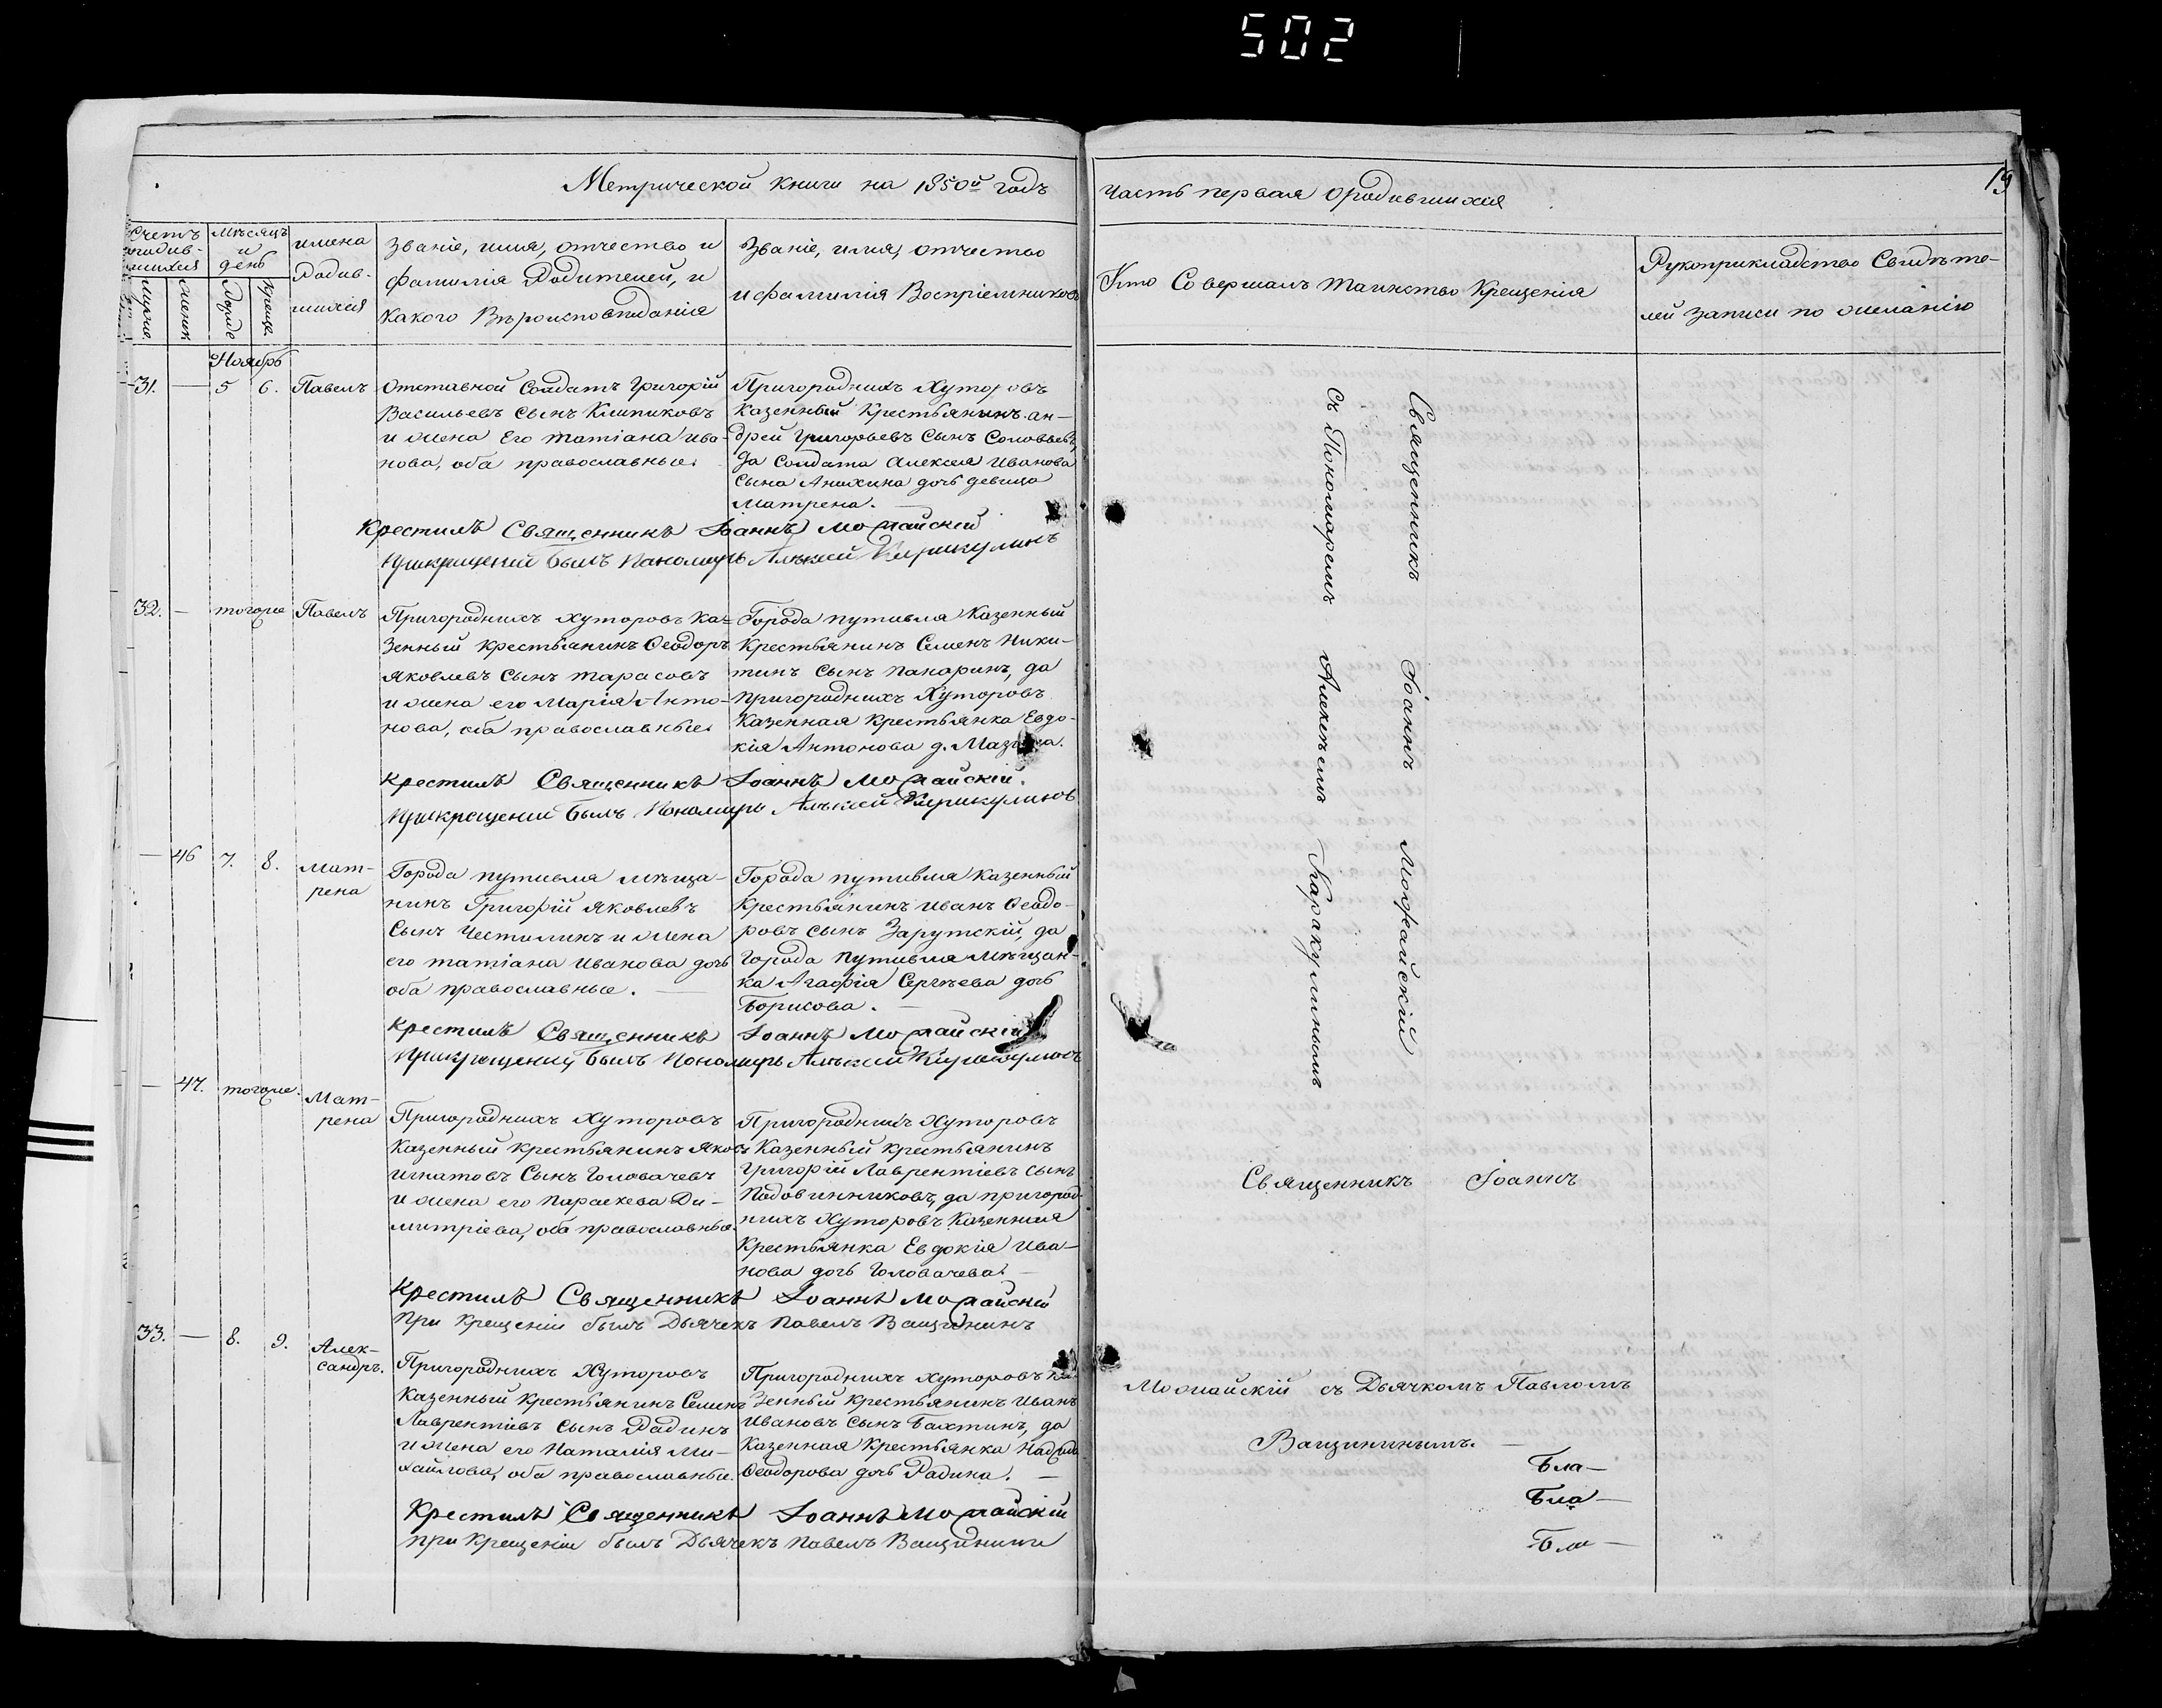 502
19
Метрической книги на 1850й годъ
часть первая о родившихся
Счетъ родив-шихся
Мѣсяцъ и день
имена Родив-шихся
Званіе, имя, отчество и
фамилія Родителей, и
какого Вѣроисповѣданія
Званіе, имя, отчество
и фамилія Воспріемниковъ
Кто Совершалъ таинство Крещенія
Рукоприкладство Свидѣте-
лей записи по желанію
Ноябрь
31. — 5 6. Павелъ
Отставной Солдатъ Григорій
Васильевъ Сынъ
и жена Его татіана ива-
нова, оба православные.
Пригороднихъ Хуторовъ
Казенный Крестьянинъ ан-
дрей Григорьевъ Сынъ Соловьевъ,
да Солдата Алексея Иванова
Сына Анихина дочь девица
Матрена. —
Крестилъ Священникъ Іоаннъ Можайскій
При крещеніи былъ Пономарь Алексей
32. — тогоже Павелъ
Пригороднихъ хуторовъ Ка-
зенный крестьянинъ Ѳеодоръ
Яковлевъ Сынъ тарасовъ
и жена его Марія Анто-
нова, оба православные.
Города путивля Казенный
Крестьянинъ Семенъ Ники-
тинъ Сынъ Панаринъ, да
пригороднихъ Хуторовъ
Казенная Крестьянка Евдо-
кія Антонова д.
Крестилъ Священникъ Іоаннъ Можайскій.
При крещеніи былъ Пономарь Алексей
— 46 7. 8. Мат-
рена
Города путивля мѣща-
нинъ Григорій Яковлевъ
Сынъ Честилинъ и жена
его татіана Иванова дочь
оба православные. —
Города путивля Казенный
Крестьянинъ Иванъ Ѳеодо-
ровъ Сынъ Зарутскій, да
города путивля мѣщан-
ка Агафія Сергѣева дочь
Борисова. —
Крестилъ Священникъ Іоаннъ Можайскій
При крещеніи былъ Пономарь Алексей
— 47. тогоже. Мат-
рена
Пригороднихъ Хуторовъ
Казенный Крестьянинъ Яковъ
игнатовъ Сынъ Головачевъ
и жена его Параскева Ди-
митріева, оба православные.
Пригороднихъ Хуторовъ
Казенный крестьянинъ
григорій Лаврентіевъ сынъ
Подовинниковъ, да пригород-
нихъ Хуторовъ Казенная
Крестьянка Евдокія Ива-
нова дочь Головачева. —
Крестилъ Священникъ Іоаннъ Можайскій
При Крещеніи былъ Дьячекъ Павелъ Ващининъ
33. — 8. 9. Алек-
сандръ.
Пригороднихъ Хуторовъ
Казенный Крестьянинъ Семенъ
Лаврентіевъ Сынъ Радинъ
и жена его Наталія Ми-
хайлова, оба православные.
Пригороднихъ Хуторовъ Ка-
зенный Крестьянинъ Иванъ
Ивановъ Сынъ Бахтинъ, да
Казенная Крестьянка
Ѳеодорова дочь Радина. —
Крестилъ Священникъ Іоаннъ Можайскій
при Крещеніи былъ Дьячекъ Павелъ Ващининъ
Священникъ Іоаннъ Можайскій
съ Пономаремъ Алексѣемъ Каракулинымъ
Священникъ Іоаннъ
Можайскій съ Дьячкомъ Павломъ
Ващининымъ. —
Бла—
Бла—
Бла—